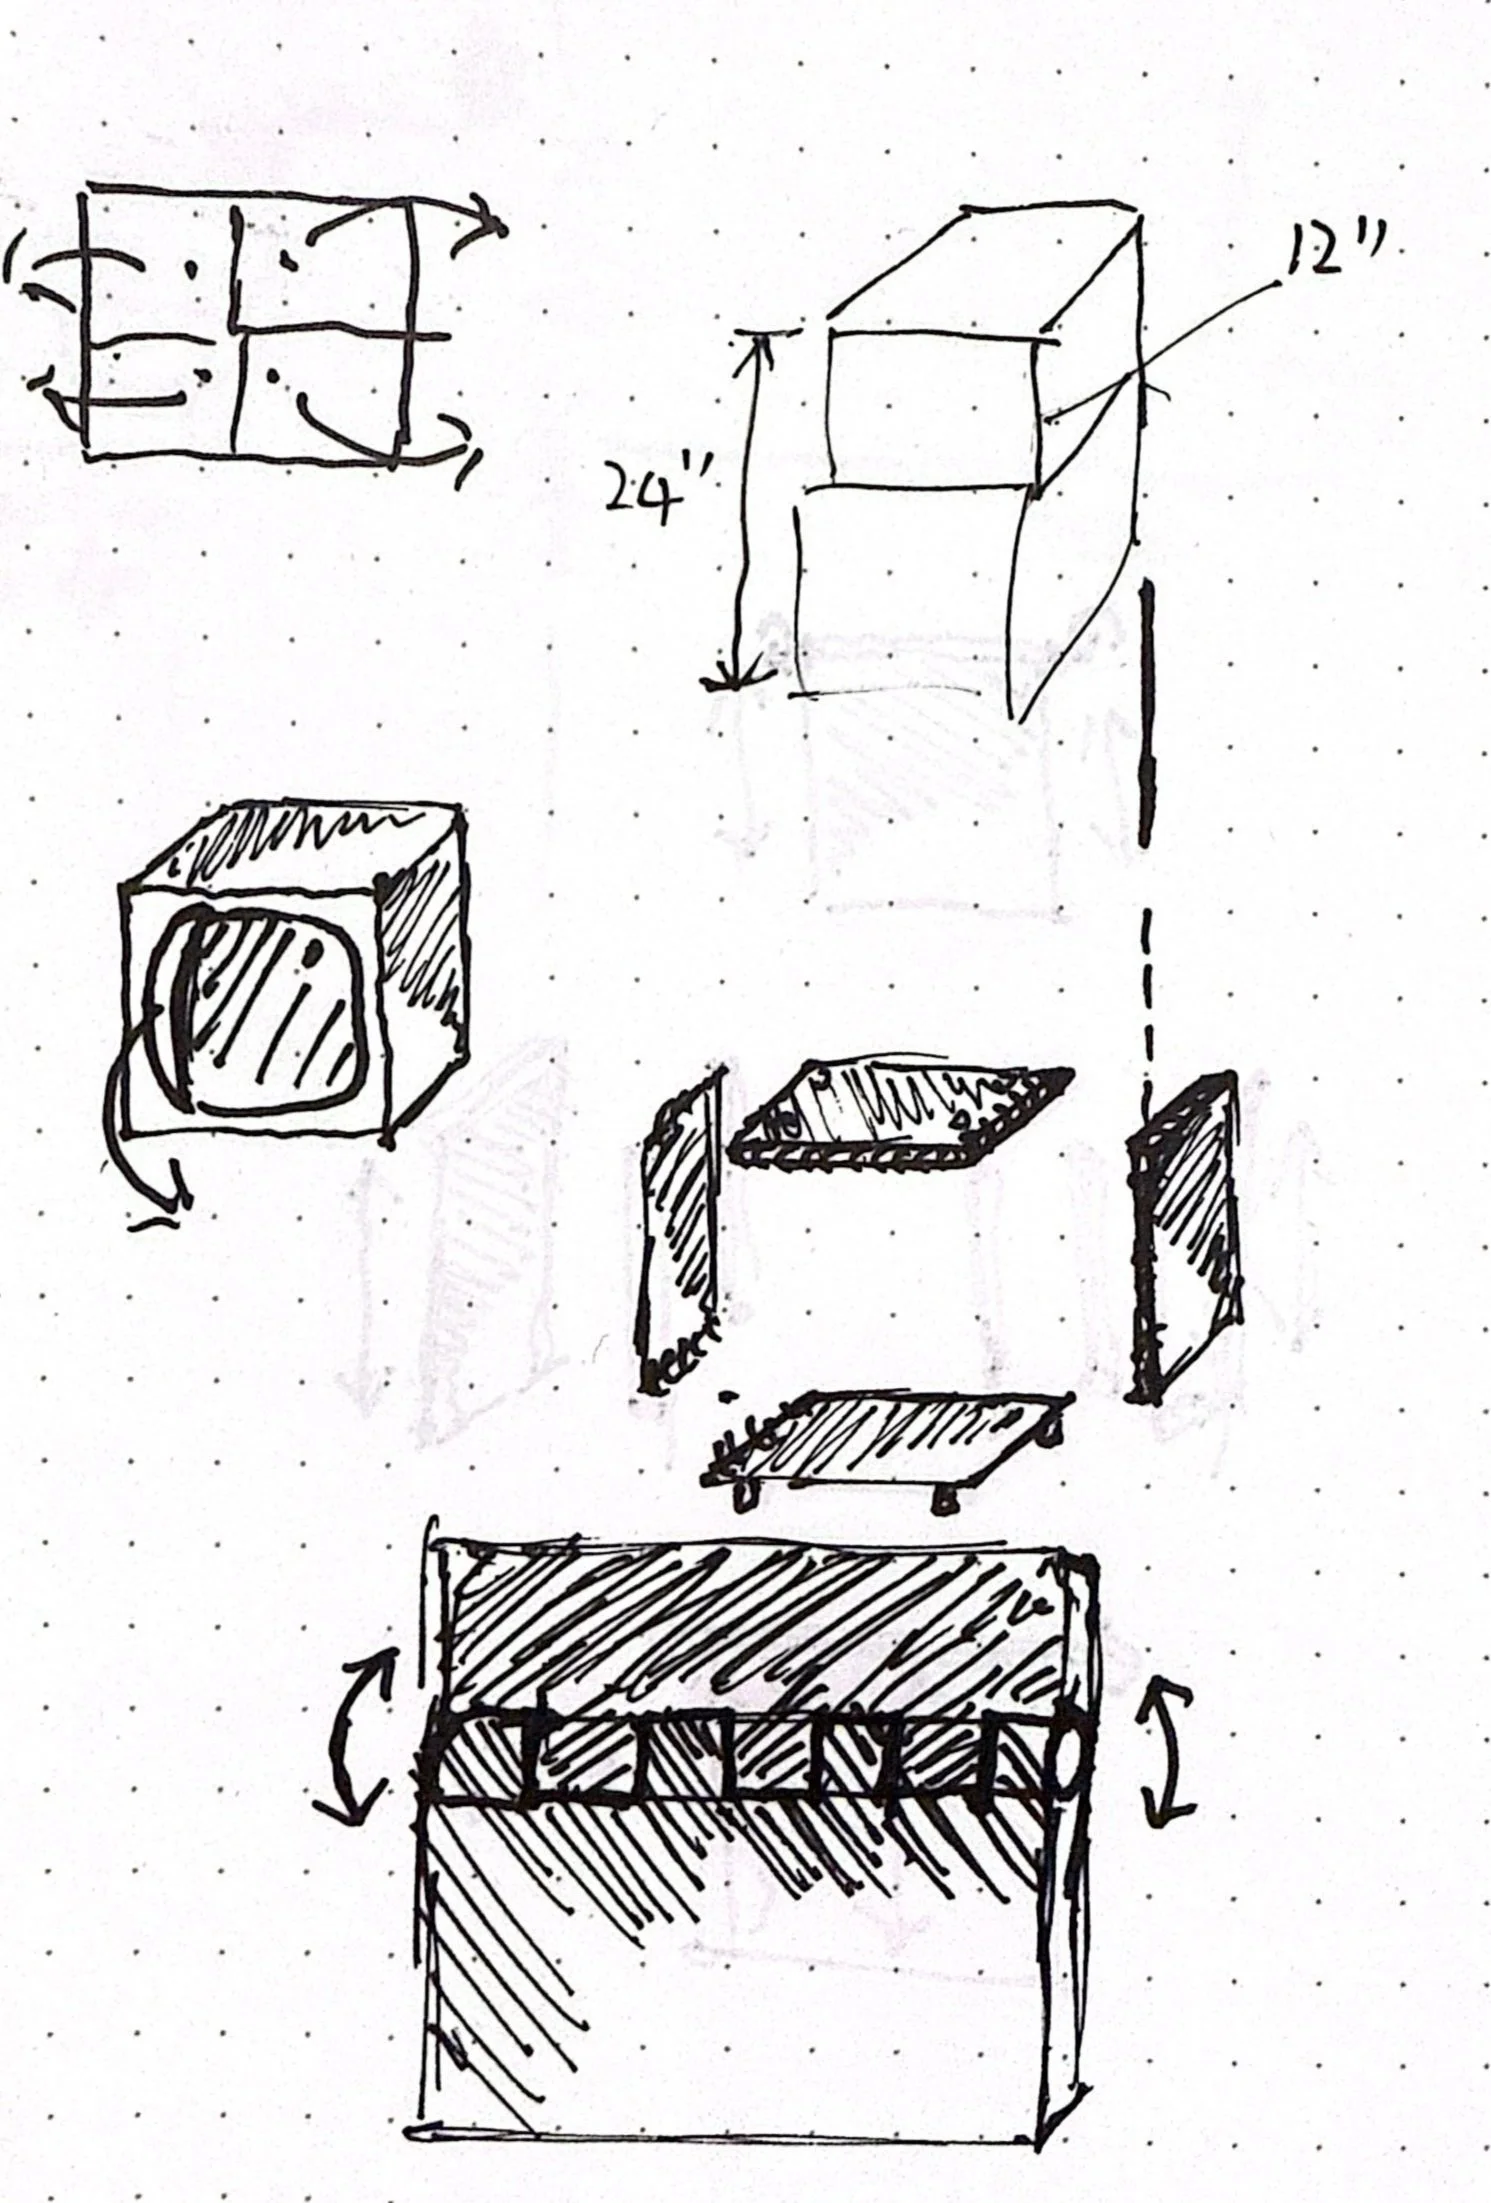 12"
24"